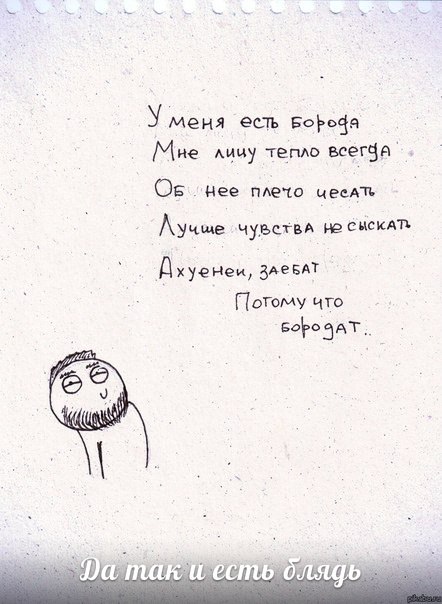 У меня есть борода
Мне лицу тепло всегда
Об нее плечо чесать
Лучше чувства не сыскать
Ахуенен, заебат
Потому что
бородат..
Да так и есть блядь
pikabu.ru